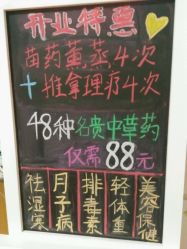 开业特惠
苗药薰蒸4次
+推拿理疗4次
48种名贵中草药
仅需88元
祛湿寒
月子病
排毒素
轻体重
美容保健